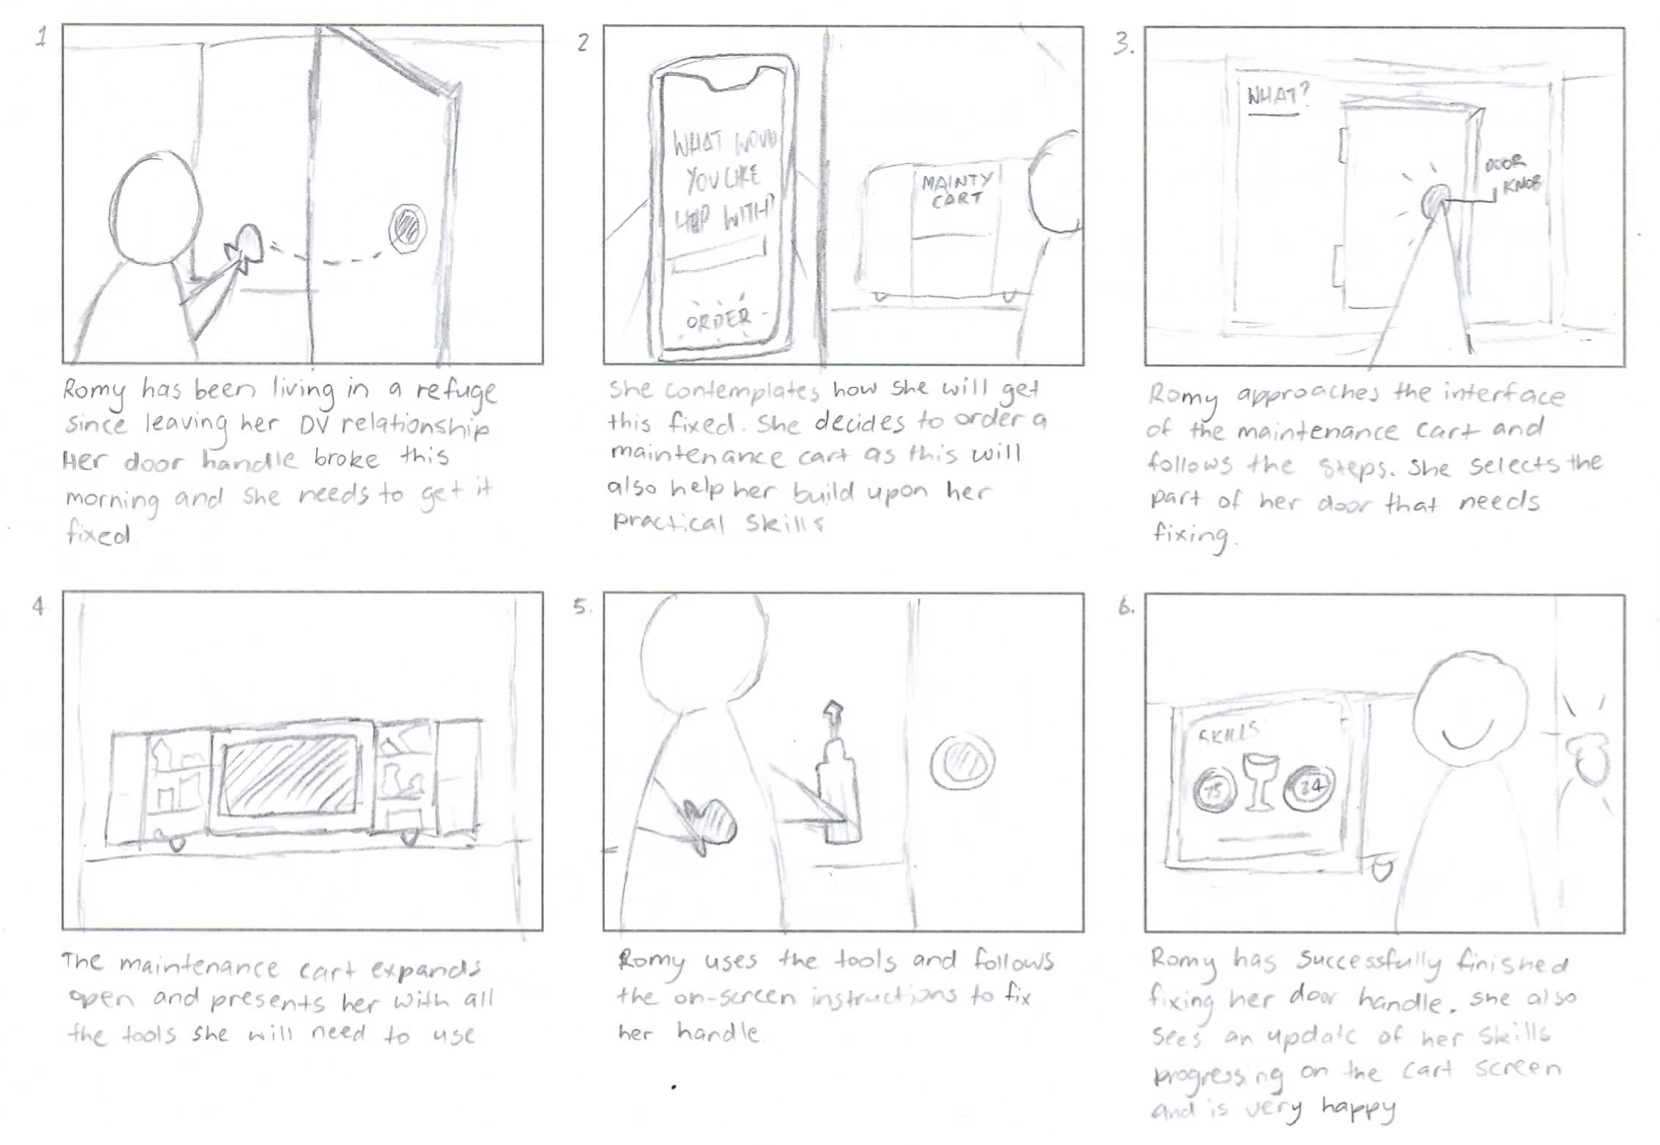 1
Romy has been living in a refuge
since leaving her DV relationship
Her door handle broke this
morning and she needs to get it
fixed
2
WHAT WOUD
YOU LIKE
HELP WITH?
ORDER
MAINTY
CART
She contemplates how she will get
this fixed. She decides to order a
maintenance cart as this will
also help her build upon her
practical skills
3.
WHAT?
DOOR
KNOB
Romy approaches the interface
of the maintenance cart and
follows the steps. She selects the
part of her door that needs
fixing.
4
The maintenance cart expands
open and presents her with all
the tools she will need to use
5.
Romy uses the tools and follows
the on-screen instructions to fix
her handle.
6.
SKILLS
75
24
Romy has successfully finished
fixing her door handle. She also
sees an update of her skills
progressing on the cart screen
and is very happy